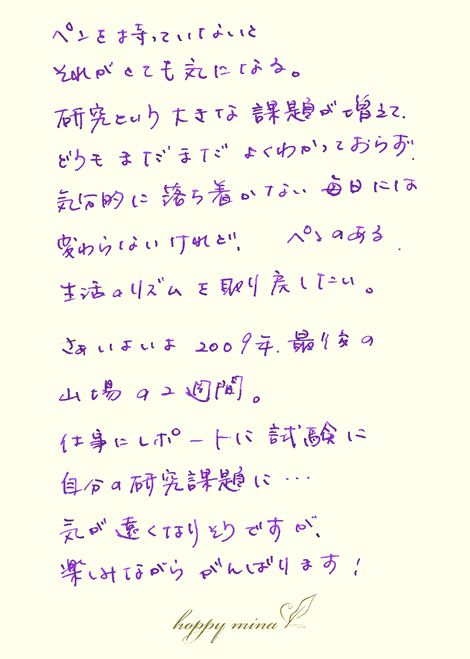 ペンを持っていないと
それがとても気になる。
研究という大きな課題が増えて、
どうもまだまだよくわかっておらず、
気分的に落ち着かない毎日には
変わらないけれど、 ペンのある
生活のリズムを取り戻したい。
さぁいよいよ2009年、最後の
山場の2週間。
仕事にレポートに試験に
自分の研究課題に…
気が遠くなりそうですが、
楽しみながらがんばります!
happy mina